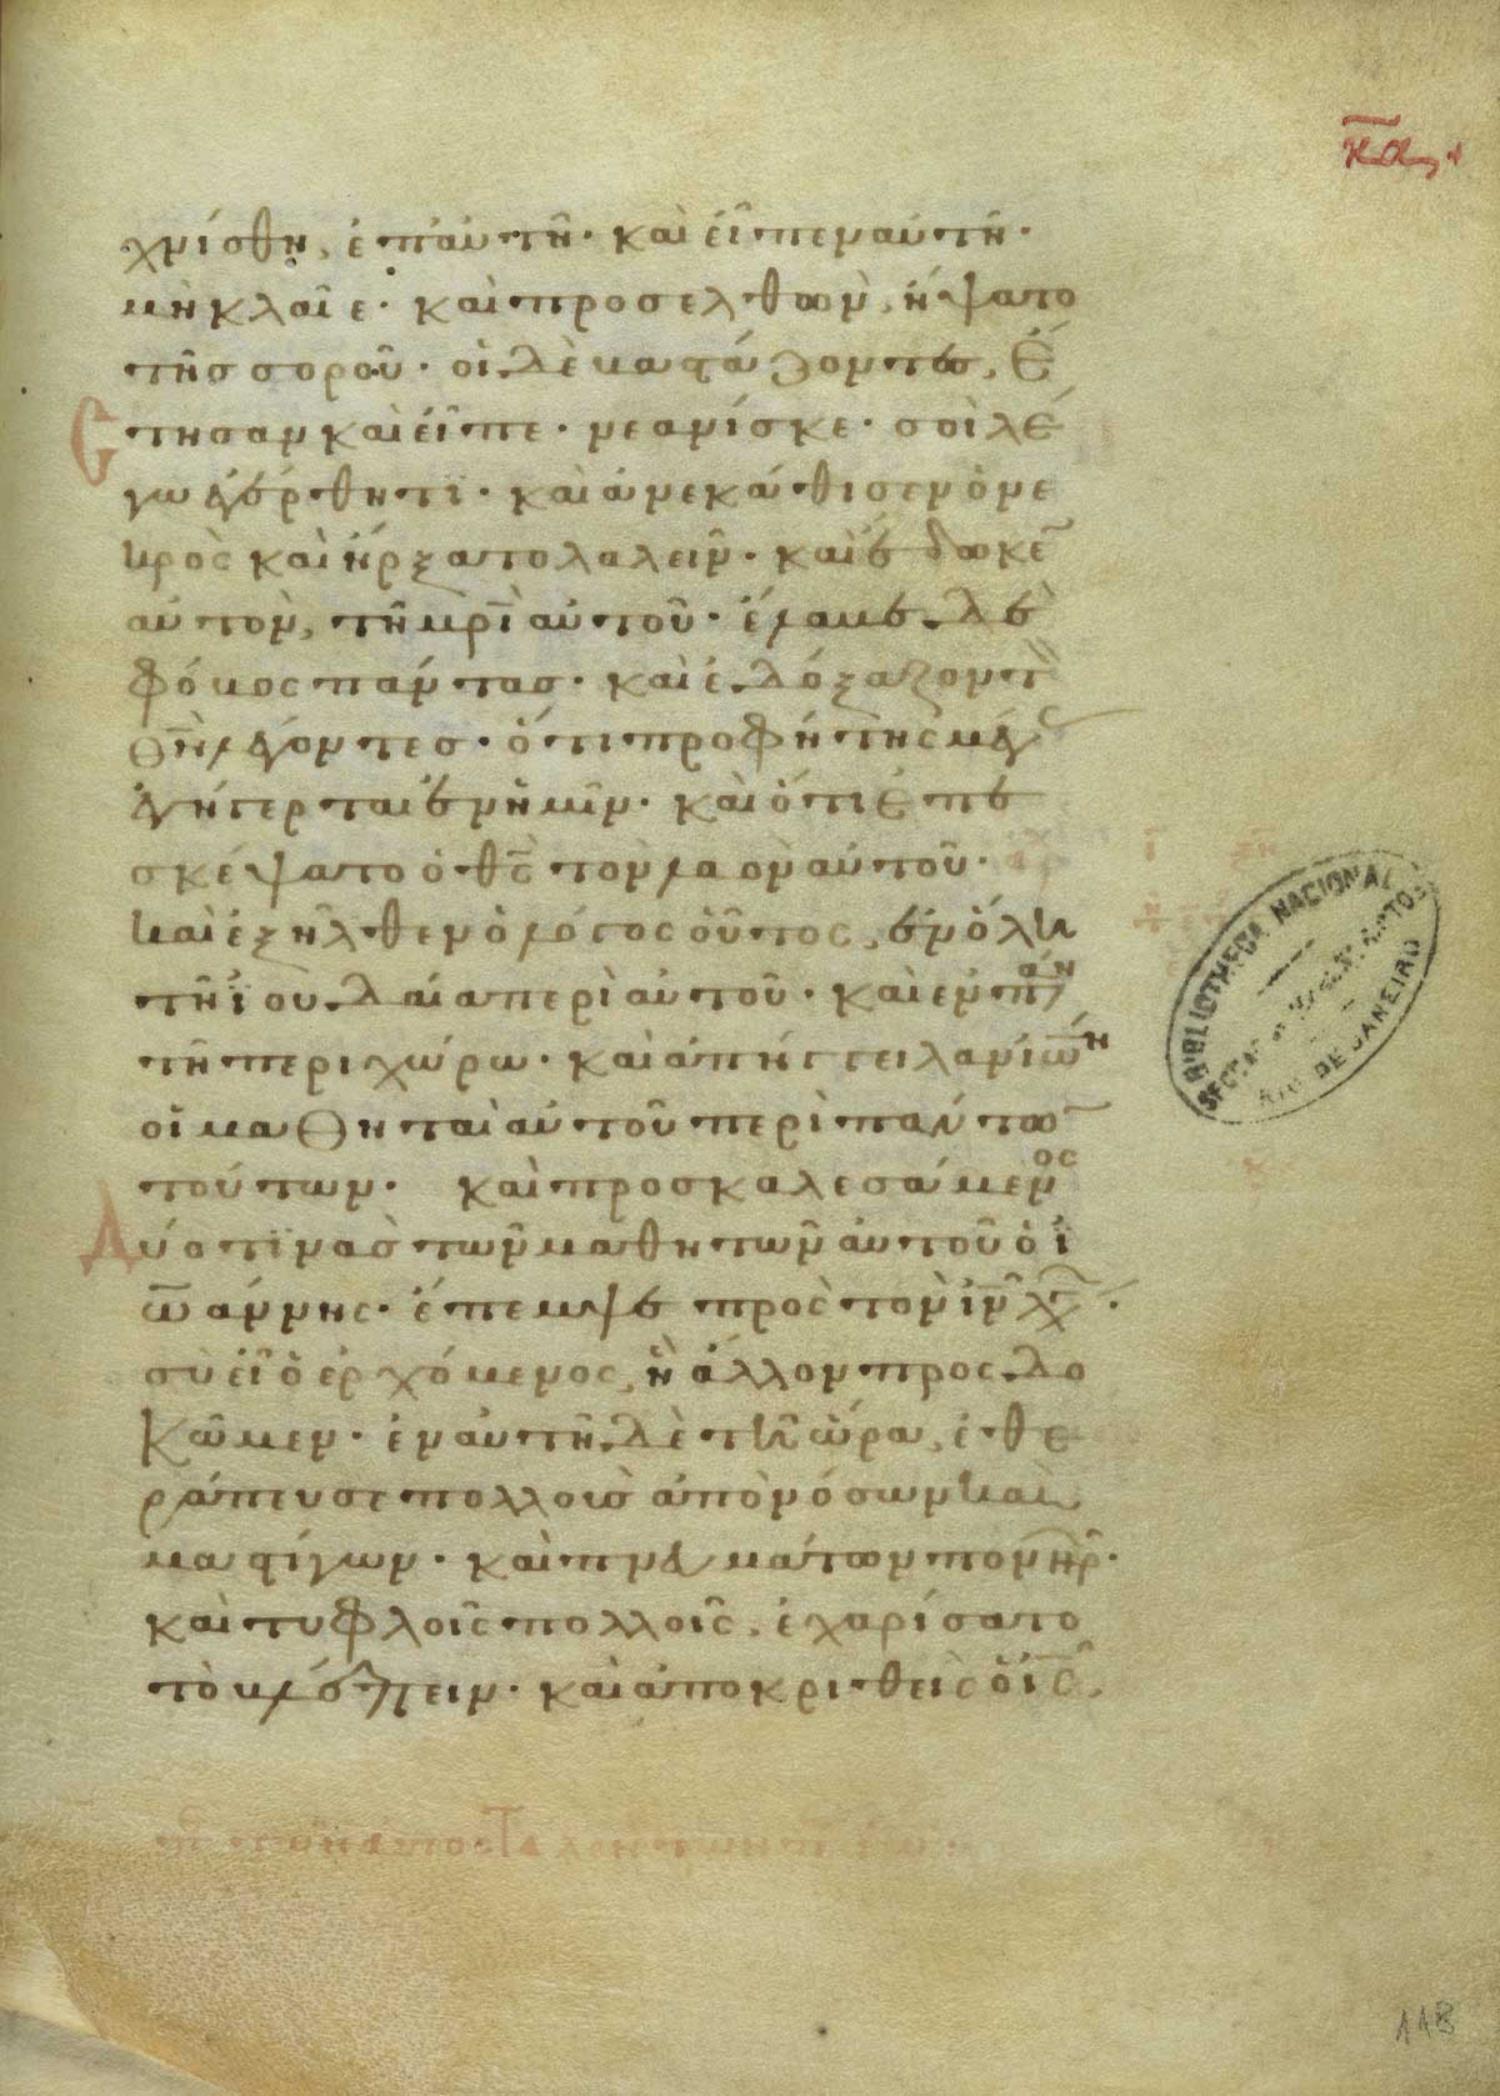 χνίσθη, ἐπ' αὐτῆ· καὶ εἶπεν αὐτῆ·
μὴ κλαῖε· καὶ προσελθὼν, ἥψατο
τῆς σοροῦ· οἱ δὲ βαστάζοντες, ἔ
στησαν καὶ εἶπε· νεανίσκε· σοὶ λέ
γω ἐγέρθητι· καὶ ἀνεκάθισεν ὁ νε
κρὸς καὶ ἤρξατο λαλεῖν· καὶ ἔδωκε̅
αὐτὸν, τῆ μρ̅ὶ αὐτοῦ· ἔλαβε δὲ
φόβος πάντας· καὶ ἐδόξαζον τὸ̅
θν̅ λέγοντες· ὅτι προφήτης μέγας
ἐγήγερται ἐν ἡμῖν· καὶ ὅτι ἐπε
σκέψατο ὁ θς̅ τὸν λαὸν αὐτοῦ·
καὶ ἐξῆλθεν ὁ λόγος οὗτος, ἐν ὅλη
τῆ ϊουδαία περὶ αὐτοῦ· καὶ ἐν πάση
τῆ περιχώρω· καὶ ἀπήγγειλαν ἰω̅νη
οἱ μαθηταὶ αὐτοῦ περὶ πάντω̅
τούτων· καὶ προσκαλεσάμενος
Δύο τϊνὰς τῶν μαθητῶν αὐτοῦ ὁ ϊ
ωάννης· ἔπεμψε πρὸς τὸν ιν̅ χ̅
σὺ εἶ ὁ ἐρχόμενος, ἢ ἄλλον προσδο
κῶμεν· ἐν αὐτῆ δὲ τῆ ὥρα, ἐθε
ράπευσε πολλοὺς ἀπὸ νόσων καὶ
μαστίγων· καὶ πνευμάτων πονηρ̅·
καὶ τυφλοῖς πολλοῖς, ἐχαρίσατο
τὸ βλέπειν· καὶ ἀποκριθεὶς ὁ ις̅,
BIBLIOTHECA NACIONAL
RIO DE JANEIRO
118